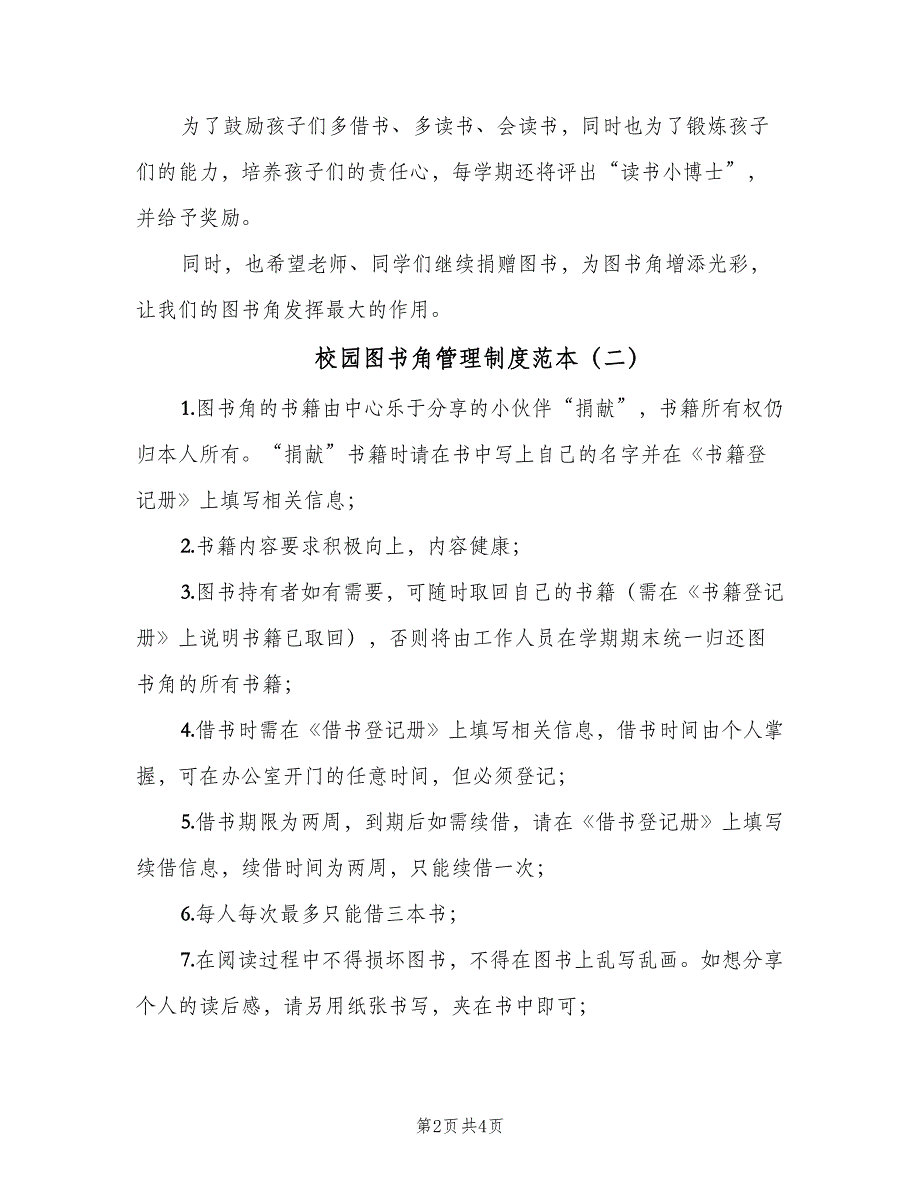 为了鼓励孩子们多借书、多读书、会读书，同时也为了锻炼孩子
们的能力，培养孩子们的责任心，每学期还将评出“读书小博士”，
并给予奖励。
同时，也希望老师、同学们继续捐赠图书，为图书角增添光彩，
让我们的图书角发挥最大的作用。
校园图书角管理制度范本（二）
1.图书角的书籍由中心乐于分享的小伙伴“捐献”，书籍所有权仍
归本人所有。“捐献”书籍时请在书中写上自己的名字并在《书籍登
记册》上填写相关信息；
2.书籍内容要求积极向上，内容健康；
3.图书持有者如有需要，可随时取回自己的书籍（需在《书籍登记
册》上说明书籍已取回），否则将由工作人员在学期期末统一归还图
书角的所有书籍；
4.借书时需在《借书登记册》上填写相关信息，借书时间由个人掌
握，可在办公室开门的任意时间，但必须登记；
5.借书期限为两周，到期后如需续借，请在《借书登记册》上填写
续借信息，续借时间为两周，只能续借一次；
6.每人每次最多只能借三本书；
7.在阅读过程中不得损坏图书，不得在图书上乱写乱画。如想分享
个人的读后感，请另用纸张书写，夹在书中即可；
第2页共4页